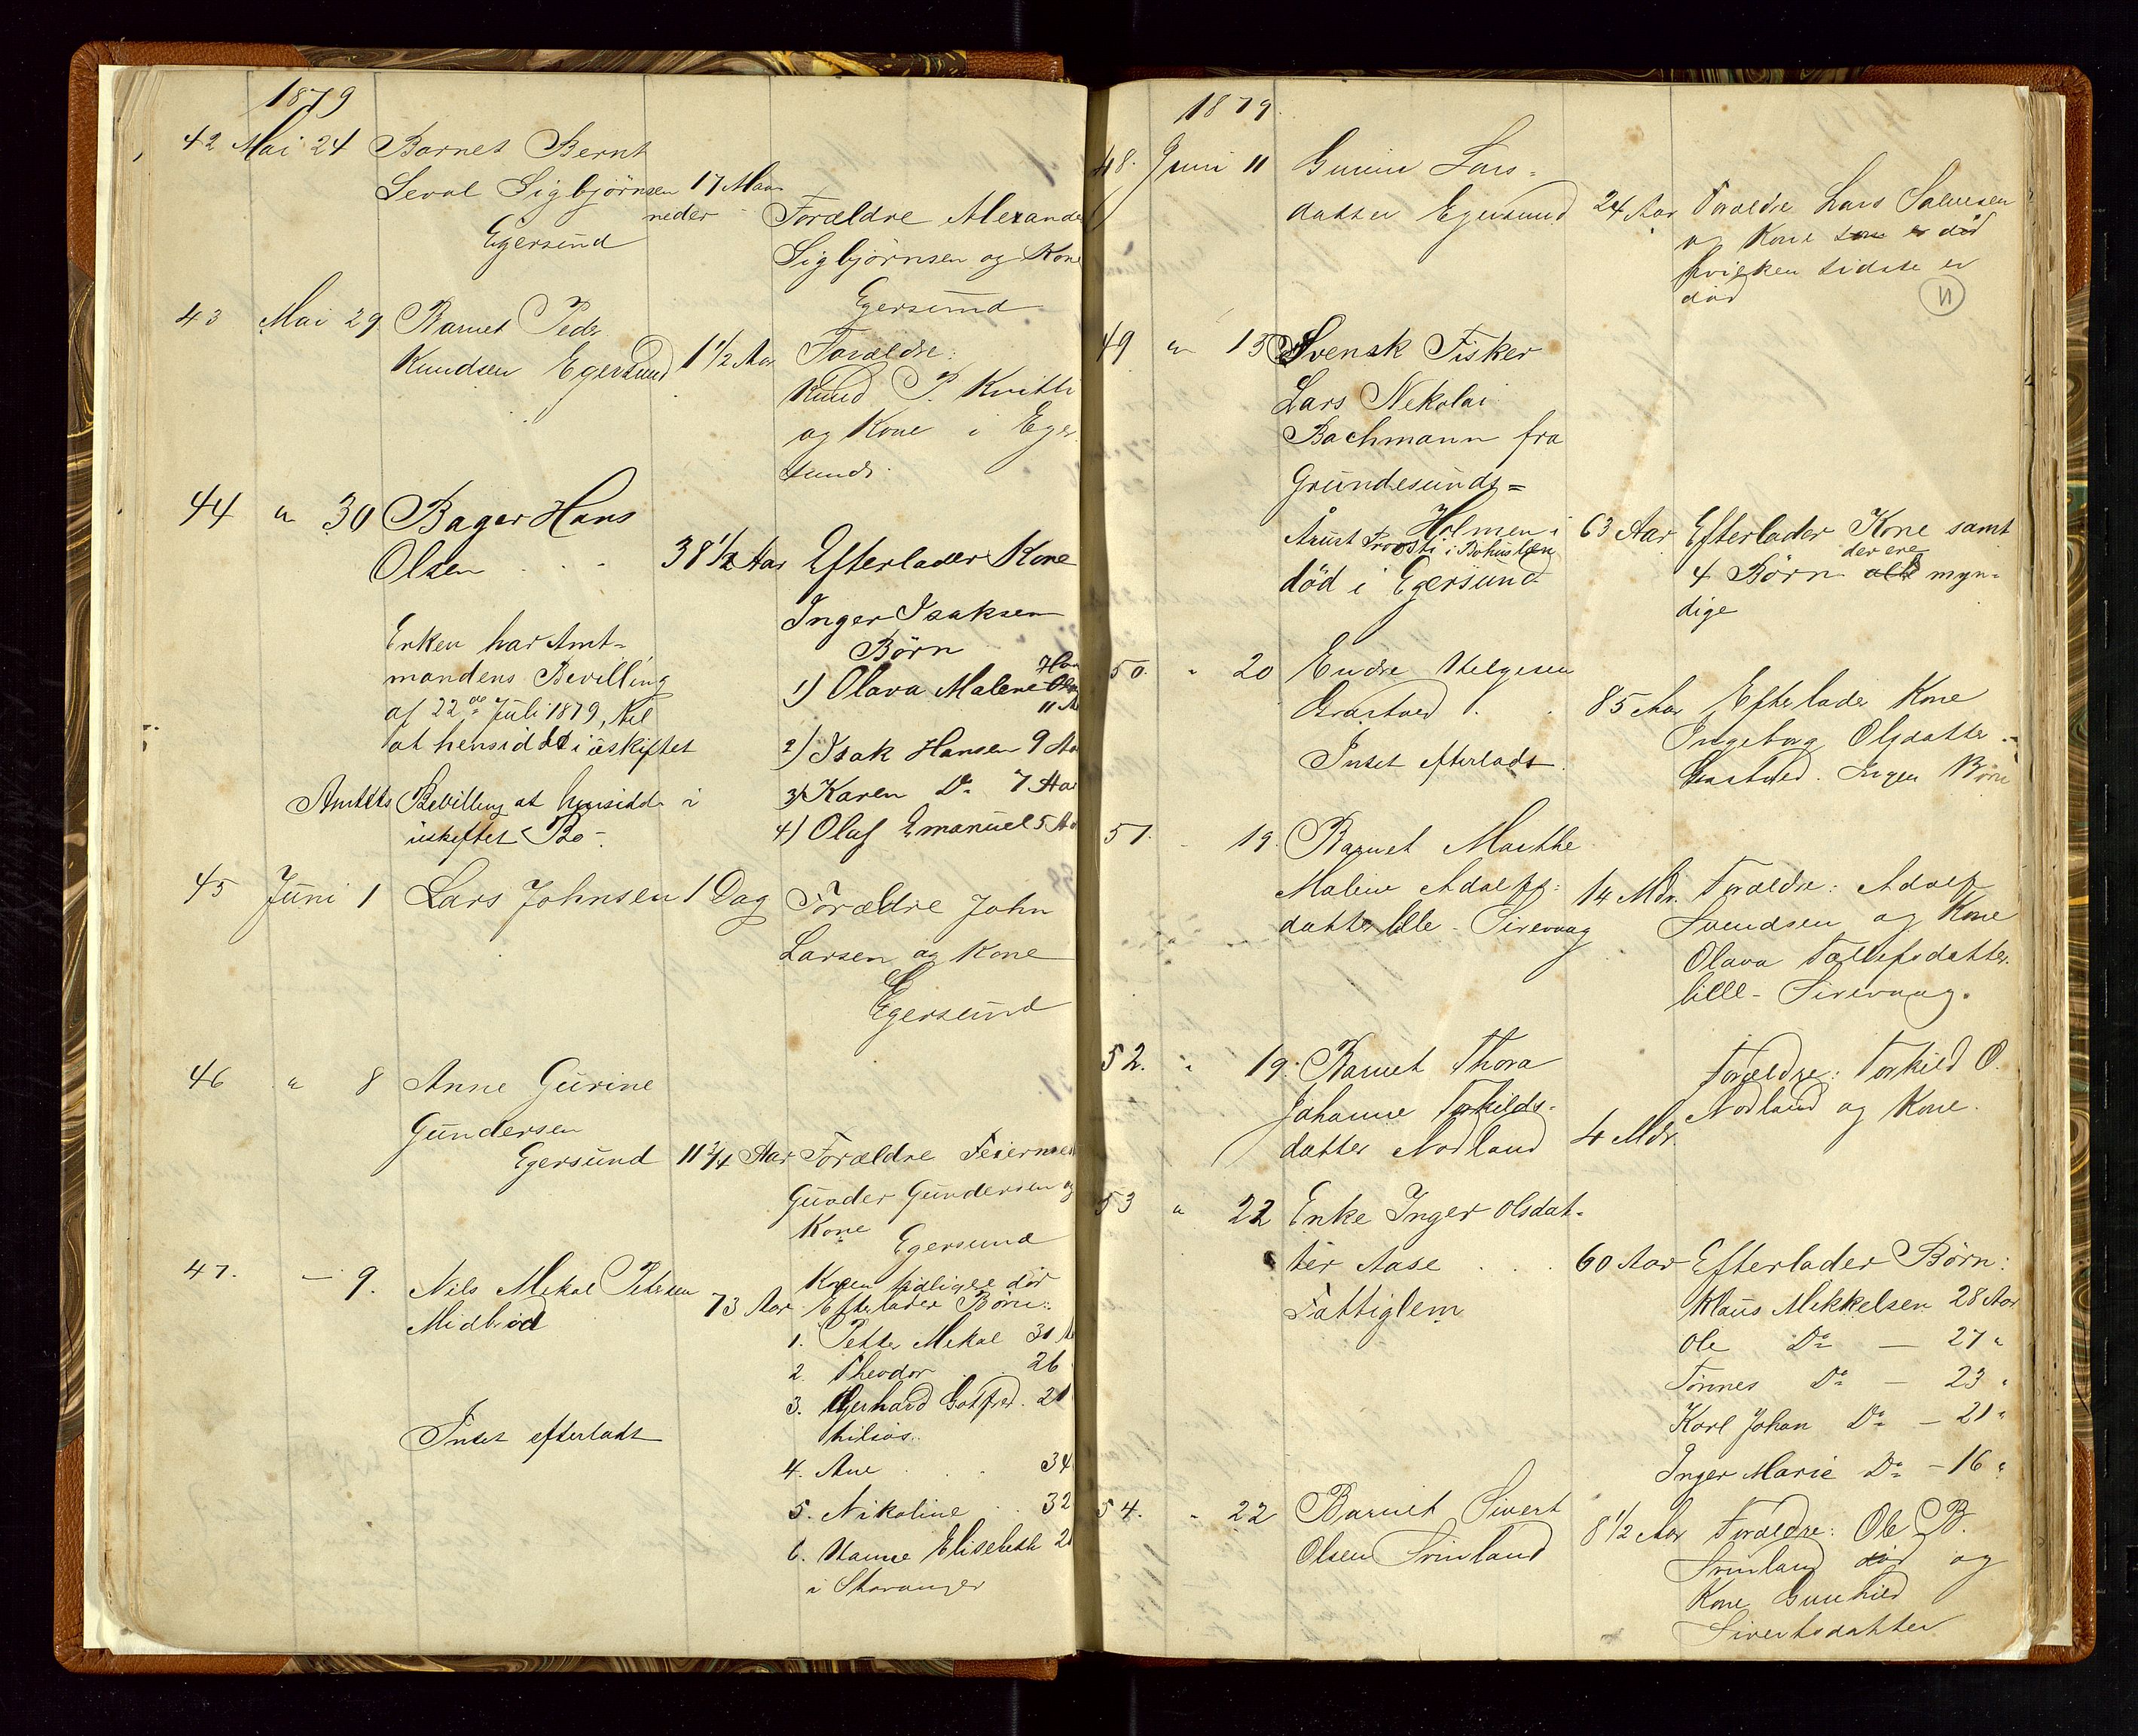 1879
42 Mai 24 Barnet Bernt
Seval Sigbjörnsen 17 Maa-
neder Forældre Alexander
Egersund Sigbjörnsen og Kone
Egersund
43 Mai 29 Barnet Peder
Knudsen Egersund 1 1/2 Aar Forældre:
Knud P. Kvitti
og Kone i Eger
sund.
44 " 30 Bager Hans
Olsen 38 1/2 Aar Efterlader Kone
Inger Isaksen
Enken har Amt= Börn
mandens Bevilling 1) Olava Malene
af 22de Juli 1879, til 11 A
at hensidde i uskiftet 2) Isak Hansen 9 Aa
Amtets Bevilling at hensidde i 3) Karen Do 7 Aar
uskiftet Bo. 4) Oluf Emanuel 5 Aa
45 Juni 1 Lars Johnsen 1 Dag Forældre John
Larsen og Kone
Egersund
46 " 8 Anne Gurine
Gundersen
Egersund 11 3/4 Aar Forældre
Gunder Gundersen og
Kone Egersund
47. - 9. Nils Mikal Petersen Konen tidligere död
Midbröd 73 Aar Efterlader Börn:
1. Petter Mikal
2. Theodor 26
3. Gerhard Gotfred. 21
Intet efterladt
4. Ane 34
5. Nikoline 32
6. Hanne Elisebeth
i Stavanger
1879.
48. Juni 11 Gurine Lars=
datter Egersund 24 Aar Forældre Lars Salvesen
og Kone som er död
hvilken sidste er
död
11
49 " 13 Svensk Fisker
Lars Nekolai
Bachmann fra
Grundesunds=
Holmen i 63 Aar Efterlader Kone samt
Provsti i Bohuslæn der ere
död i Egersund 4 Börn alle myn=
dige
50. " 20 Endre Helgesen
Grastved 85 Aar Efterlader Kone
Ingeborg Olsdatter
Intet efterladt. Grastved. Ingen Börn
51. 19. Barnet Marthe
Maline Adolfs= 14 Mdr. Forældre: Adolf
datter lille - Sirevaag Svendsen og Kone
Olava Tollefsdatter
lille - Sirevaag.
52. " 19. Barnet Thora Forældre: Torkild O.
Johanne Torkilds- Nodland og Kone.
datter Nodland 4 Mdr.
53 " 22 Enke Inger Olsdat=
ter Aase 60 Aar Efterlader Börn:
Fattiglem Klaus Mikkelsen 28 Aar
Ole Do — 27 "
Tönnes Do — 23 "
Karl Johan Do — 21 "
Inger Marie Do — 16 "
54. " 22 Barnet Sivert
Olsen Svinland 8 1/2 Aar Forældre: Ole B.
Svinland död og
Kone Gunhild
Sivertsdatter